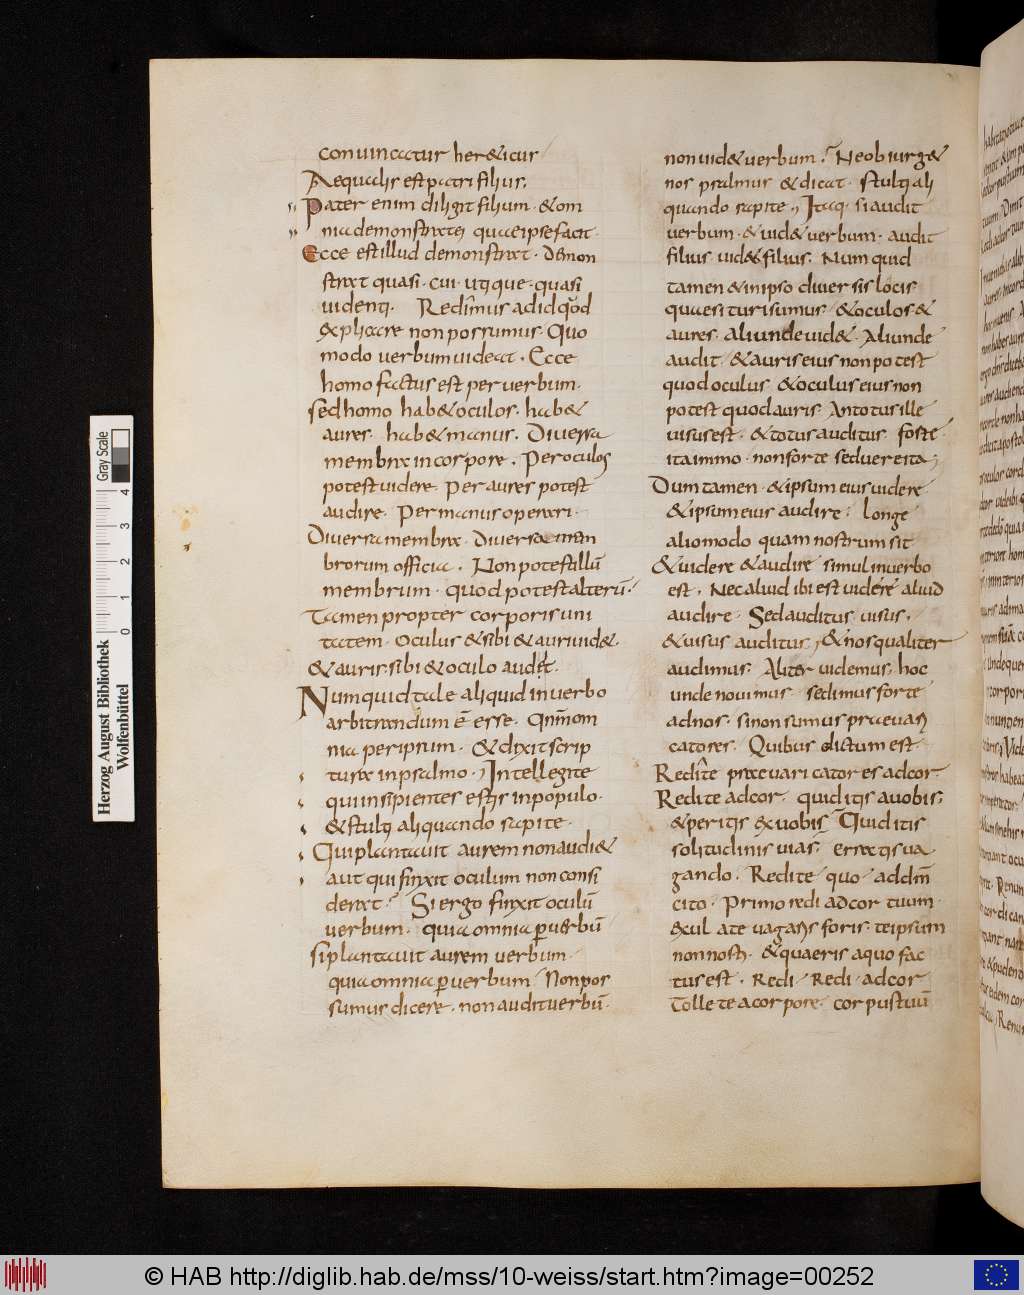 conuincatur her&icus
Aequalis est patri filius.
Pater enim diligit filium · & om
nia demonstrat ei quae ipse facit ·
Ecce est illud demonstrat · demon
strat quasi · cui · utique · quasi
uidenti · Redimus ad id quod
explicare non possumus · Quo
modo uerbum uideat · Ecce
homo factus est per uerbum ·
sed homo hab& oculos · hab&
aures · hab& manus · Diuersa
membra in corpore · Per oculos
potest uidere · Per aures potest
audire · Per manus operari ·
Diuersa membra · diuersa mem
brorum officia · Non potest allū
membrum · quod potest alterū ·
Tamen propter corporis uni
tatem · Oculus & sibi & auri uid& ·
& auris sibi & oculo audet ·
Numquid tale aliquid in uerbo
arbitrandum ē esse · Qnm̄ om
nia per ipsum · & dixit scrip
tura in psalmo · Intellegite
qui insipientes estis in populo ·
& stulti aliquando sapite ·
Qui plantauit aurem non audi&
aut qui finxit oculum non consi
derat · Si ergo finxit oculū
uerbum · quia omnia p uerbū
si plantauit aurem uerbum ·
quia omnia p uerbum Non pos
sumus dicere · non audit uerbū ·
non uid& uerbum · Ne obiurg&
nos psalmus & dicat · stulti ali
quando sapite · Itaq · si audit
uerbum · & uid& uerbum · audit
filius uid& filius · Num quid
tamen & in ipso diuersis locis
quaesituri sumus · & oculos &
aures · aliunde uid& · Aliunde
audit · & auris eius non potest
quod oculus & oculus eius non
potest quod auris · An totus ille
uisus est · & totus auditus forte
ita immo · non forte sed uere ita;
Dum tamen · & ipsum eius uidere
& ipsum eius audire · longe
alio modo quam nostrum sit
& uidere & audire simul in uerbo
est · Nec aliud ibi est uidere aliud
audire · Sed auditus uisus ·
& uisus auditus · & nos qualiter
audimus · Aliter uidemus · hoc
unde nouimus · sedimus forte
ad nos · si non sumus praeuari
catores · Quibus dictum est
Redite praeuaricatores ad cor ·
Redite ad cor · quid itis a uobis;
& peritis ex uobis Quid itis
solitudinis uias · erratis ua
gando · Redite quo addnm̄
cito · Primo redi ad cor tuum ·
Exul a te uagaris foris · te ipsum
non nosti · & quaeris a quo fac
tus est · Redi Redi ad cor
Tolle te a corpore · corpus tuū
Herzog August Bibliothek
Wolfenbüttel
Gray Scale
0 1 2 3 4
© HAB http://diglib.hab.de/mss/10-weiss/start.htm?image=00252